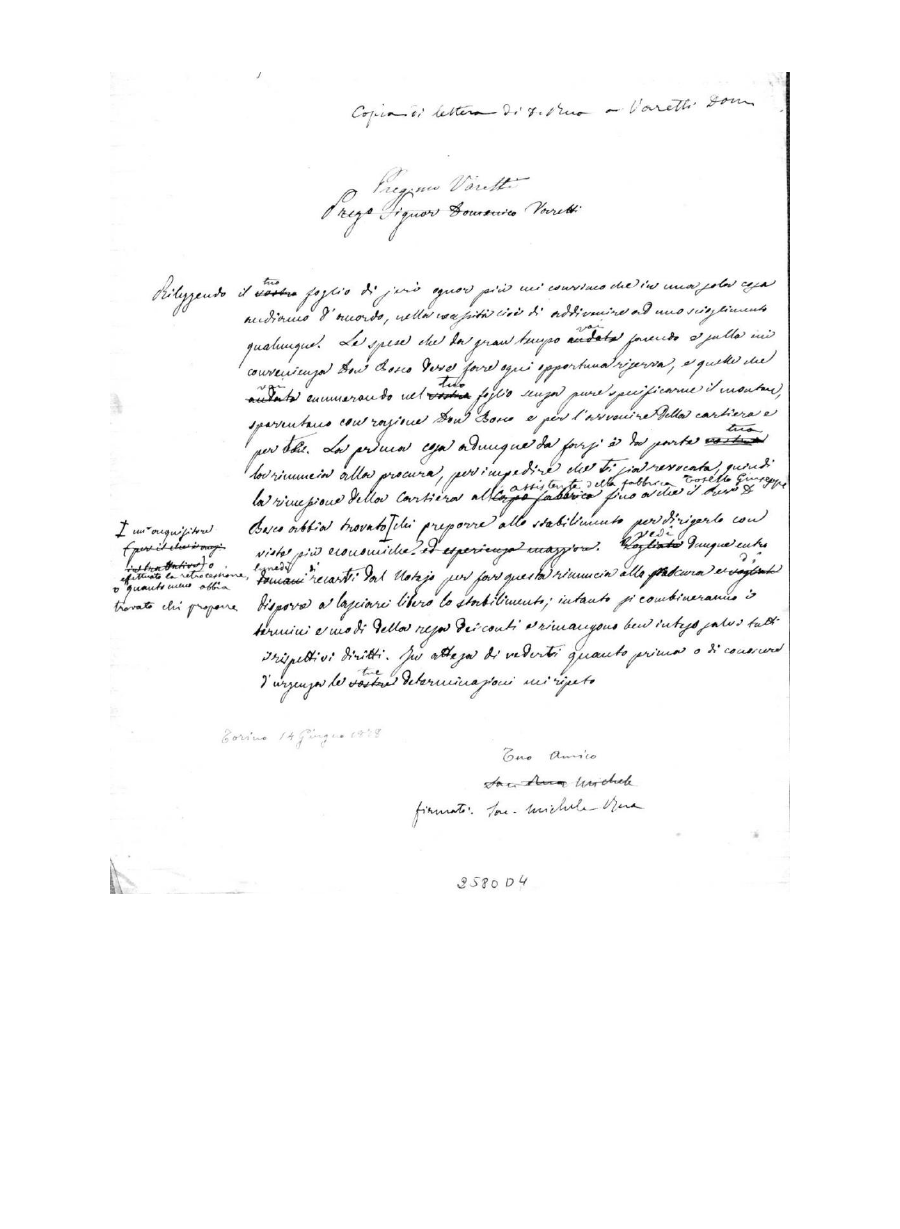 Copia di lettera di D. Rua a Varetti Dom
Pregmo Varetti
Prego Signor Domenico Varetti
tuo
Rileggendo il vostro foglio di jeri ognor più mi convinco che in una sola cosa
andiamo d'accordo, nella necessità cioè di addivenire ad uno scioglimento
vai
qualunque. Le spese che da gran tempo andate facendo e sulla cui
convenienza Don Bosco deve fare ogni opportuna riserva, e quelle che
vai tuo
andate enumerando nel vostro foglio senza pure specificarne il montare,
spaventano con ragione Don Bosco e per l'avvenire della cartiera e
tua
per te. La prima cosa adunque da farsi è da parte vostra
la rinuncia alla procura, per impedire che ti sia revocata, quindi
assistente della fabbrica Tosello Giuseppe
la rimessione della Cartiera al Capo fabbrica fino a che il Revd D.
Bosco abbia trovato I chi preporre allo stabilimento per dirigerlo con
I un acquisitore
(per il che è in oggi
in trattative) o
effettuato la retrocessione,
o quanto meno abbia
trovato chi preporre
vedi
viste più economiche ed esperienza maggiore. Vogliate dunque entro
lunedì di
domani recarti dal Notajo per far questa rinuncia alla procura e vogliate
disporre a lasciare libero lo stabilimento; intanto si combineranno i
termini e modi della resa dei conti e rimangono ben inteso salvi tutti
i rispettivi diritti. In attesa di vederti quanto prima o di conoscere
tue
d'urgenza le vostre determinazioni mi ripeto
Torino 14 Giugno 1878
Tuo Amico
Sac. Rua Michele
firmato: Sac. Michele Rua
3580 D4